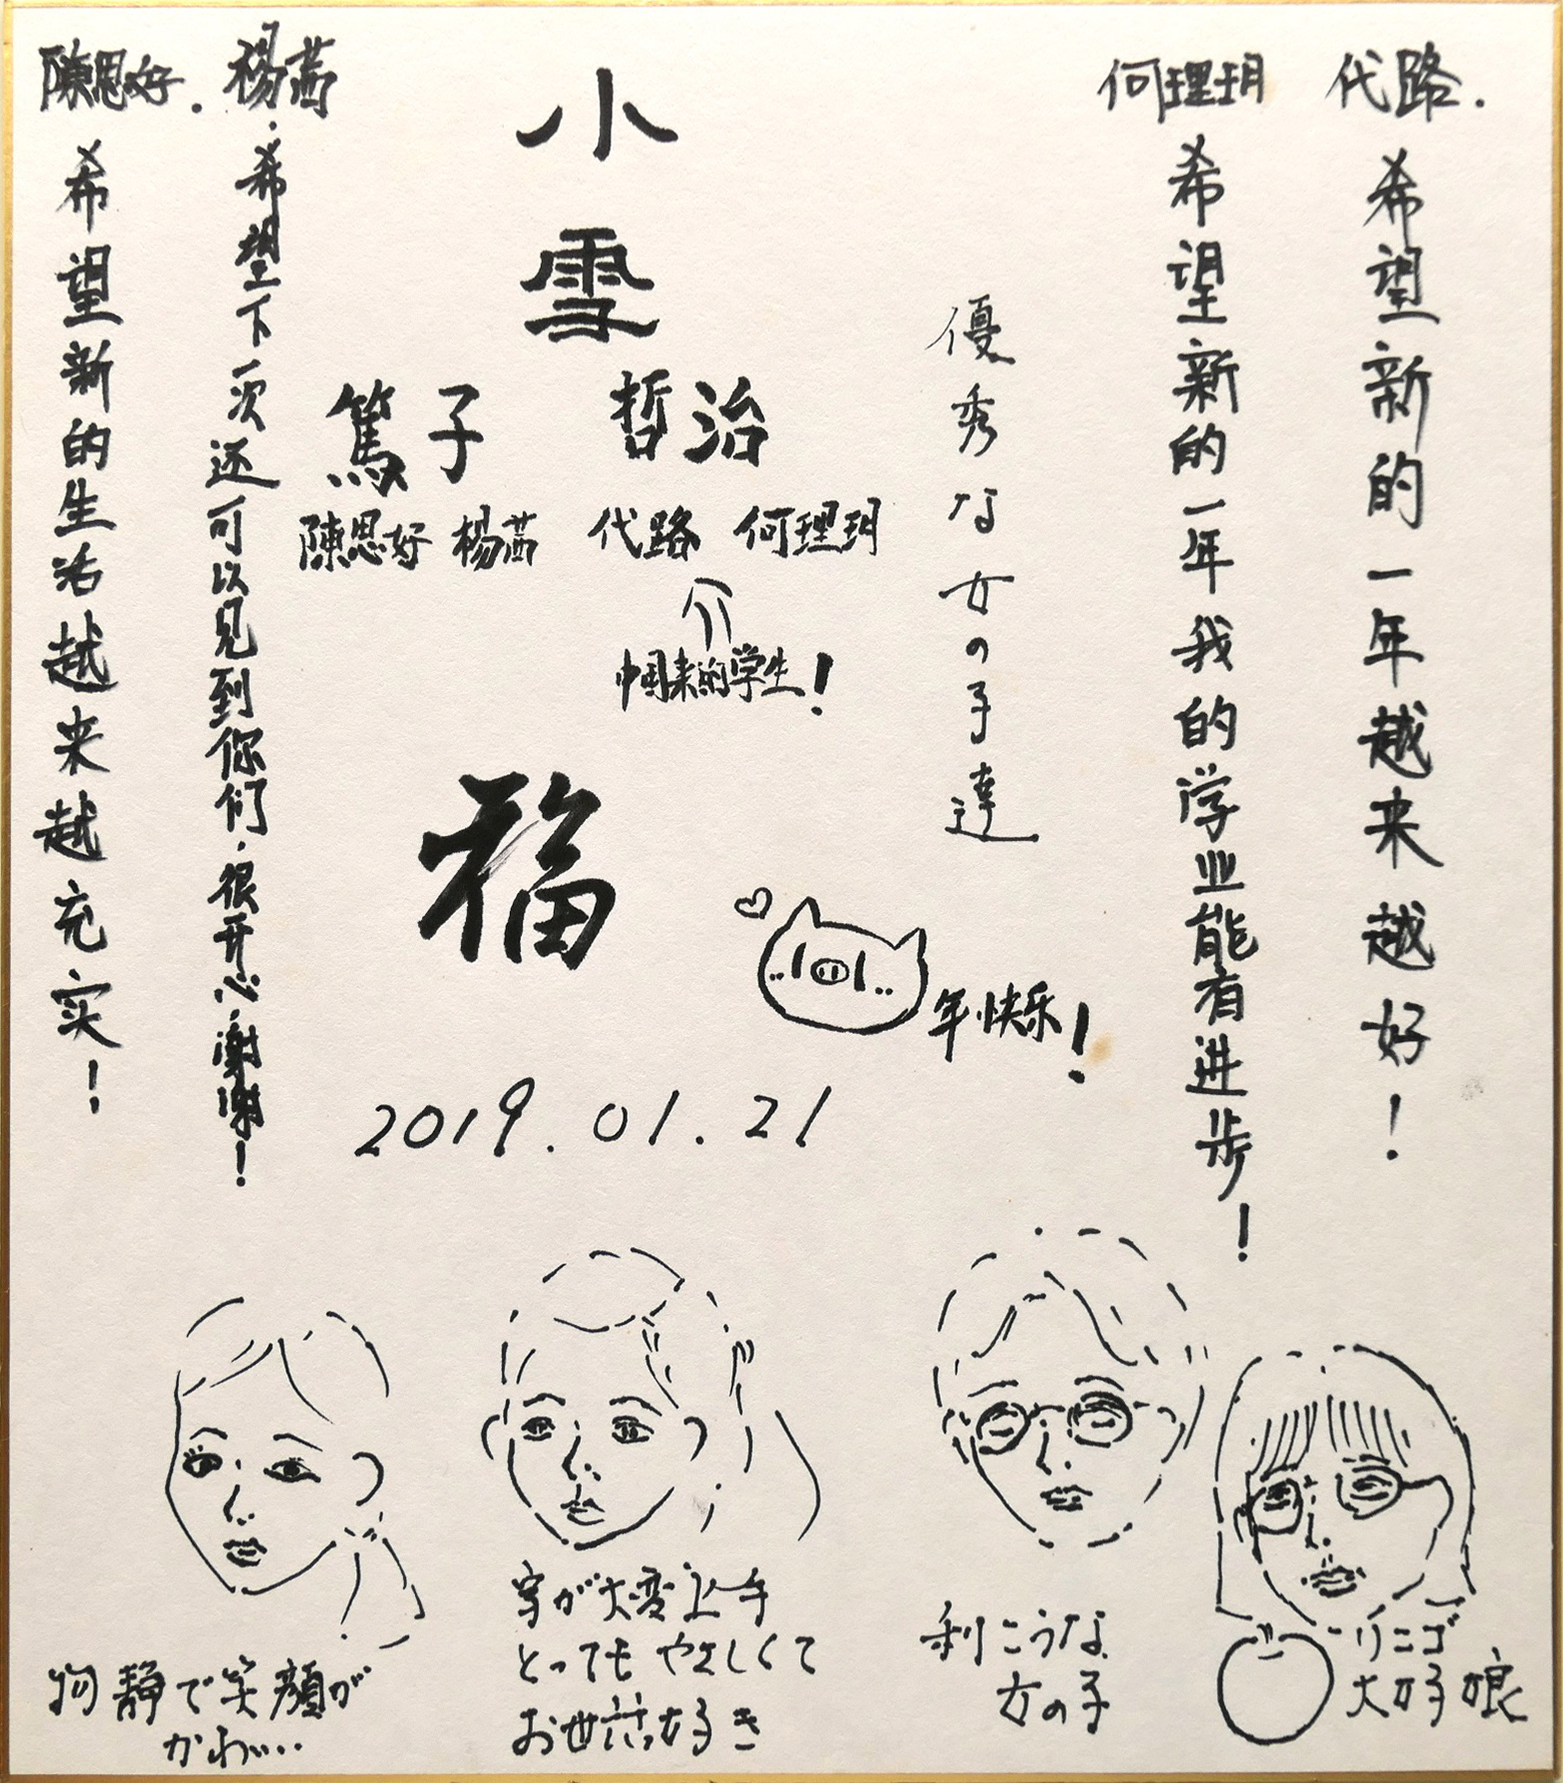 代路.
希望新的一年越来越好！
何理玥
希望新的一年我的学业能有进步！
優秀な女の子達
小雪
篤子 哲治
陳思妤 楊茜 代路 何理玥
中国来的学生！
福
年快乐！
2019.01.21
楊茜.
希望下一次还可以见到你们,很开心,谢谢！
陳思妤.
希望新的生活越来越充实！
物静で笑顔が
かわい..
字が大変上手
とってもやさしくて
お世話好き
利こうな
女の子
リンゴ
大好き娘